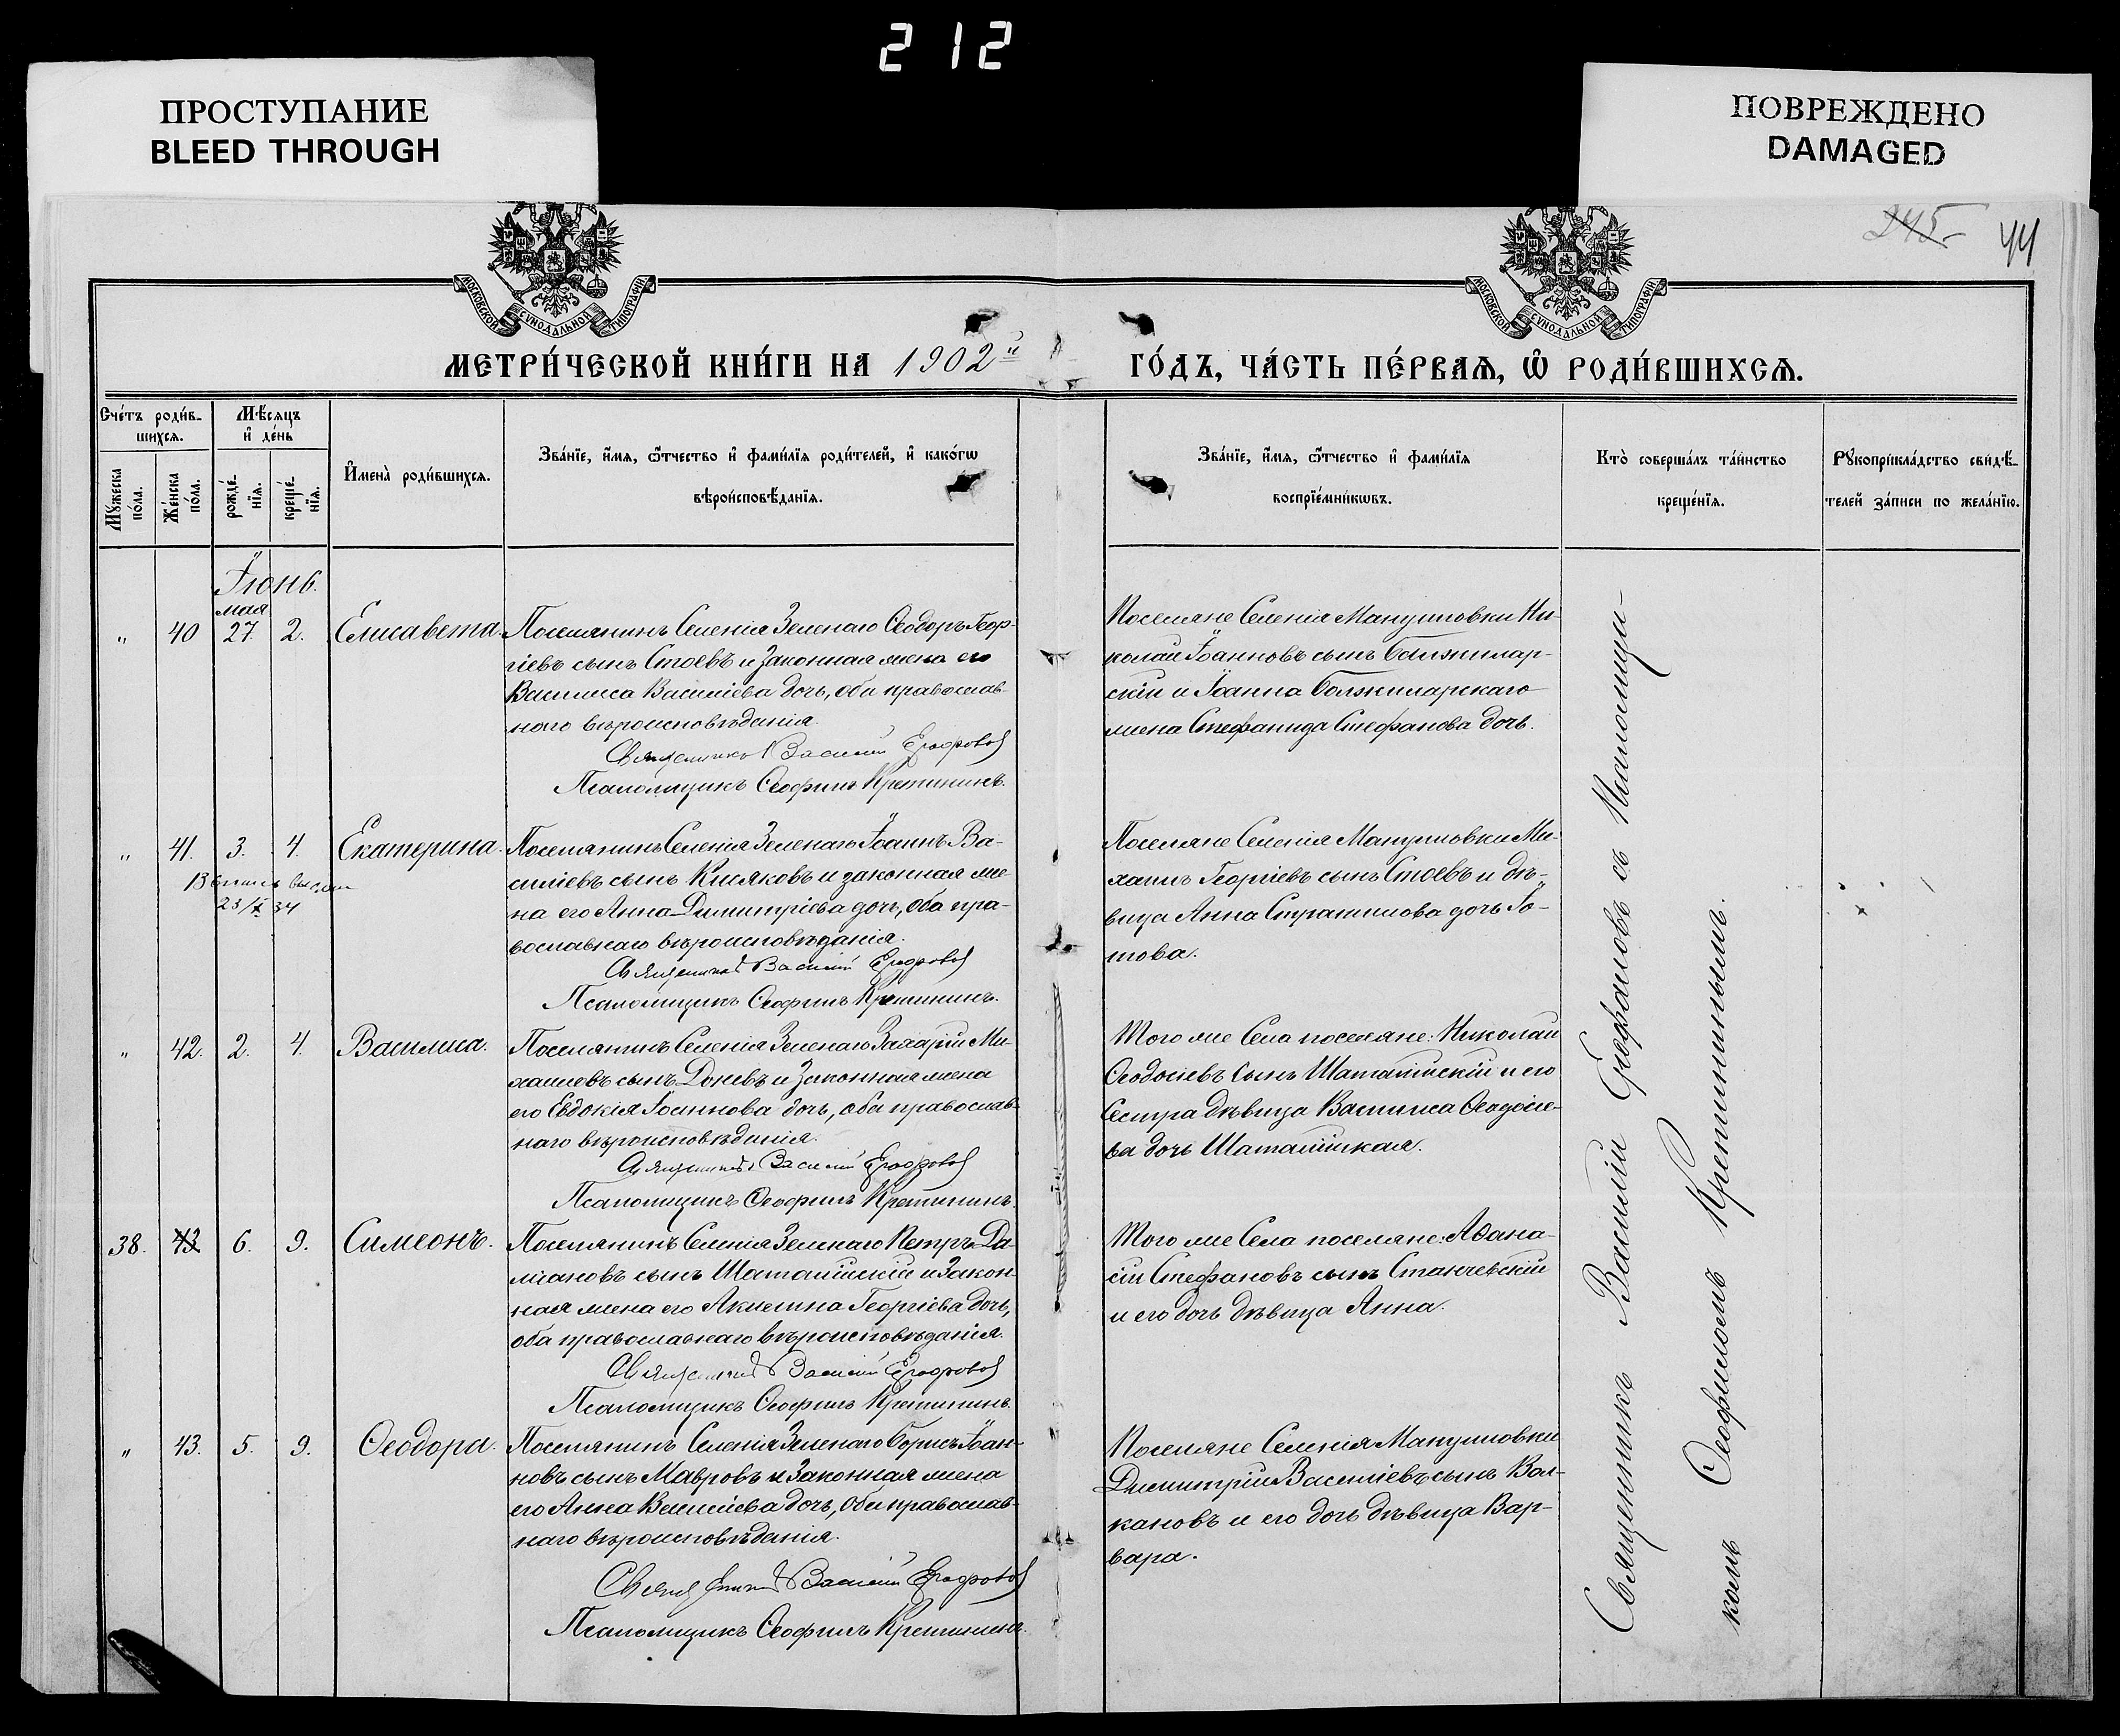 212
ПРОСТУПАНИЕ
BLEED THROUGH
ПОВРЕЖДЕНО
DAMAGED
245
44
МОСКОВСКОЙ СУНОДАЛЬНОЙ ТИПОГРАФІИ
МОСКОВСКОЙ СУНОДАЛЬНОЙ ТИПОГРАФІИ
МЕТРИ́ЧЕСКОЙ КНИ́ГИ НА 1902й ГО́ДЪ, ЧА́СТЬ ПЕ́РВАѦ, Ѿ РОДИ́ВШИХСѦ.
Сче́тъ роди́в-
шихсѧ.
Мѣ́сѧцъ
и҆ де́нь
Мꙋ́жеска
по́ла.
Же́нска
по́ла.
рожде́-
нїѧ.
креще́-
нїѧ.
И҆мена̀ роди́вшихсѧ.
Зва́нїе, и҆́мѧ, ѻ҆́тчество и҆ фами́лїѧ роди́телей, и҆ како́гѡ
вѣроисповѣ́данїѧ.
Зва́нїе, и҆́мѧ, ѻ҆́тчество и҆ фами́лїѧ
воспрїе́мникѡвъ.
Кто̀ соверша́лъ та́инство
креще́нїѧ.
Рꙋкоприкла́дство свидѣ́-
телей за́писи по жела́нїю.
Іюнь.
мая
" 40 27. 2. Елисавета.
Поселянинъ Селенія Зеленаго Ѳеодоръ Геор-
гіевъ сынъ Стоевъ и законная жена его
Василиса Василіева дочь, оба православ-
ного вѣроисповѣданія.
Священникъ Василій Ерофеловъ
Псаломщикъ Ѳеофилъ Кретининъ.
Поселяне Селенія Мануиловки Ни-
колай Іоанновъ сынъ Балжилар-
скій и Іоанна Балжиларскаго
жена Стефанида Стефанова дочь.
" 41. 3. 4. Екатерина.
23/X 34
Поселянинъ Селенія Зеленаго Іоаннъ Ва-
силіевъ сынъ Кисяковъ и законная же-
на его Анна Димитріева дочь, оба пра-
вославнаго вѣроисповѣданія.
Священникъ Василій
Псаломщикъ Ѳеофилъ Кретининъ.
Поселяне Селенія Мануиловки Ми-
хаилъ Георгіевъ сынъ Стоевъ и дѣ-
вица Анна Стратилова дочь Іо-
това.
" 42. 2. 4. Василиса.
Поселянинъ Селенія Зеленаго Захарій Ми-
хаиловъ сынъ Доневъ и Законная жена
его Евдокія Іоаннова дочь, оба православ-
наго вѣроисповѣданія.
Священникъ Василій
Псаломщикъ Ѳеофилъ Кретининъ.
Того же Села поселяне: Николай
Ѳеодосіевъ сынъ Шаталійскій и его
Сестра дѣвица Василиса Ѳеодосіе-
ва дочь Шаталійская.
38. 43 6. 9. Симеонъ.
Поселянинъ Селенія Зеленаго Петръ Да-
міановъ сынъ Шаталійскій и Закон-
ная жена его Акилина Георгіева дочь,
оба православнаго вѣроисповѣданія.
Священникъ Василій
Псаломщикъ Ѳеофилъ Кретининъ.
Того же Села поселяне: Аѳана-
сій Стефановъ сынъ Станчевскій
и его дочь дѣвица Анна.
" 43. 5. 9. Ѳеодора.
Поселянинъ Селенія Зеленаго Борисъ Іоан-
новъ сынъ Мавровъ и Законная жена
его Анна Василіева дочь, оба православ-
наго вѣроисповѣданія.
Священникъ Василій
Псаломщикъ Ѳеофилъ Кретининъ.
Поселяне Селенія Мануиловки
Димитрій Василіевъ сынъ Вол-
кановъ и его дочь дѣвица Вар-
вара.
Священникъ Василій съ Псаломщи-
комъ Ѳеофиломъ Кретининымъ.